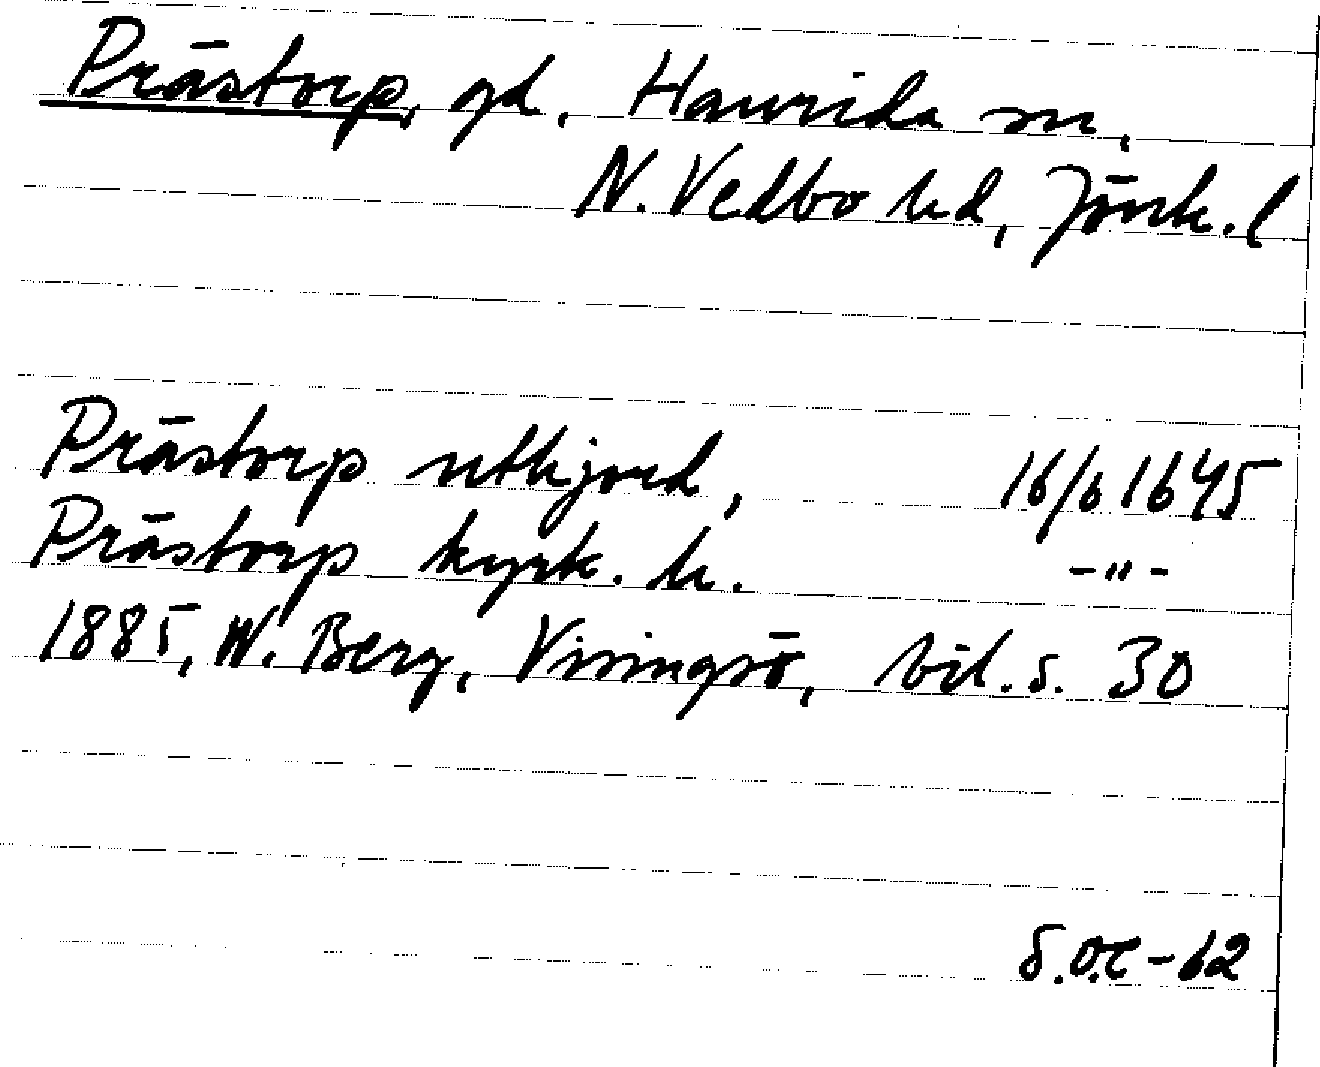 Prästorp, gd, Haurida sn,
N. Vedbo hd, Jönk. l
Prästorp utkjord, 16/6 1645
Prästorp kyrk. h. -"-
1885, W. Berg, Visingsö, bil. s. 30
S.O.E-62